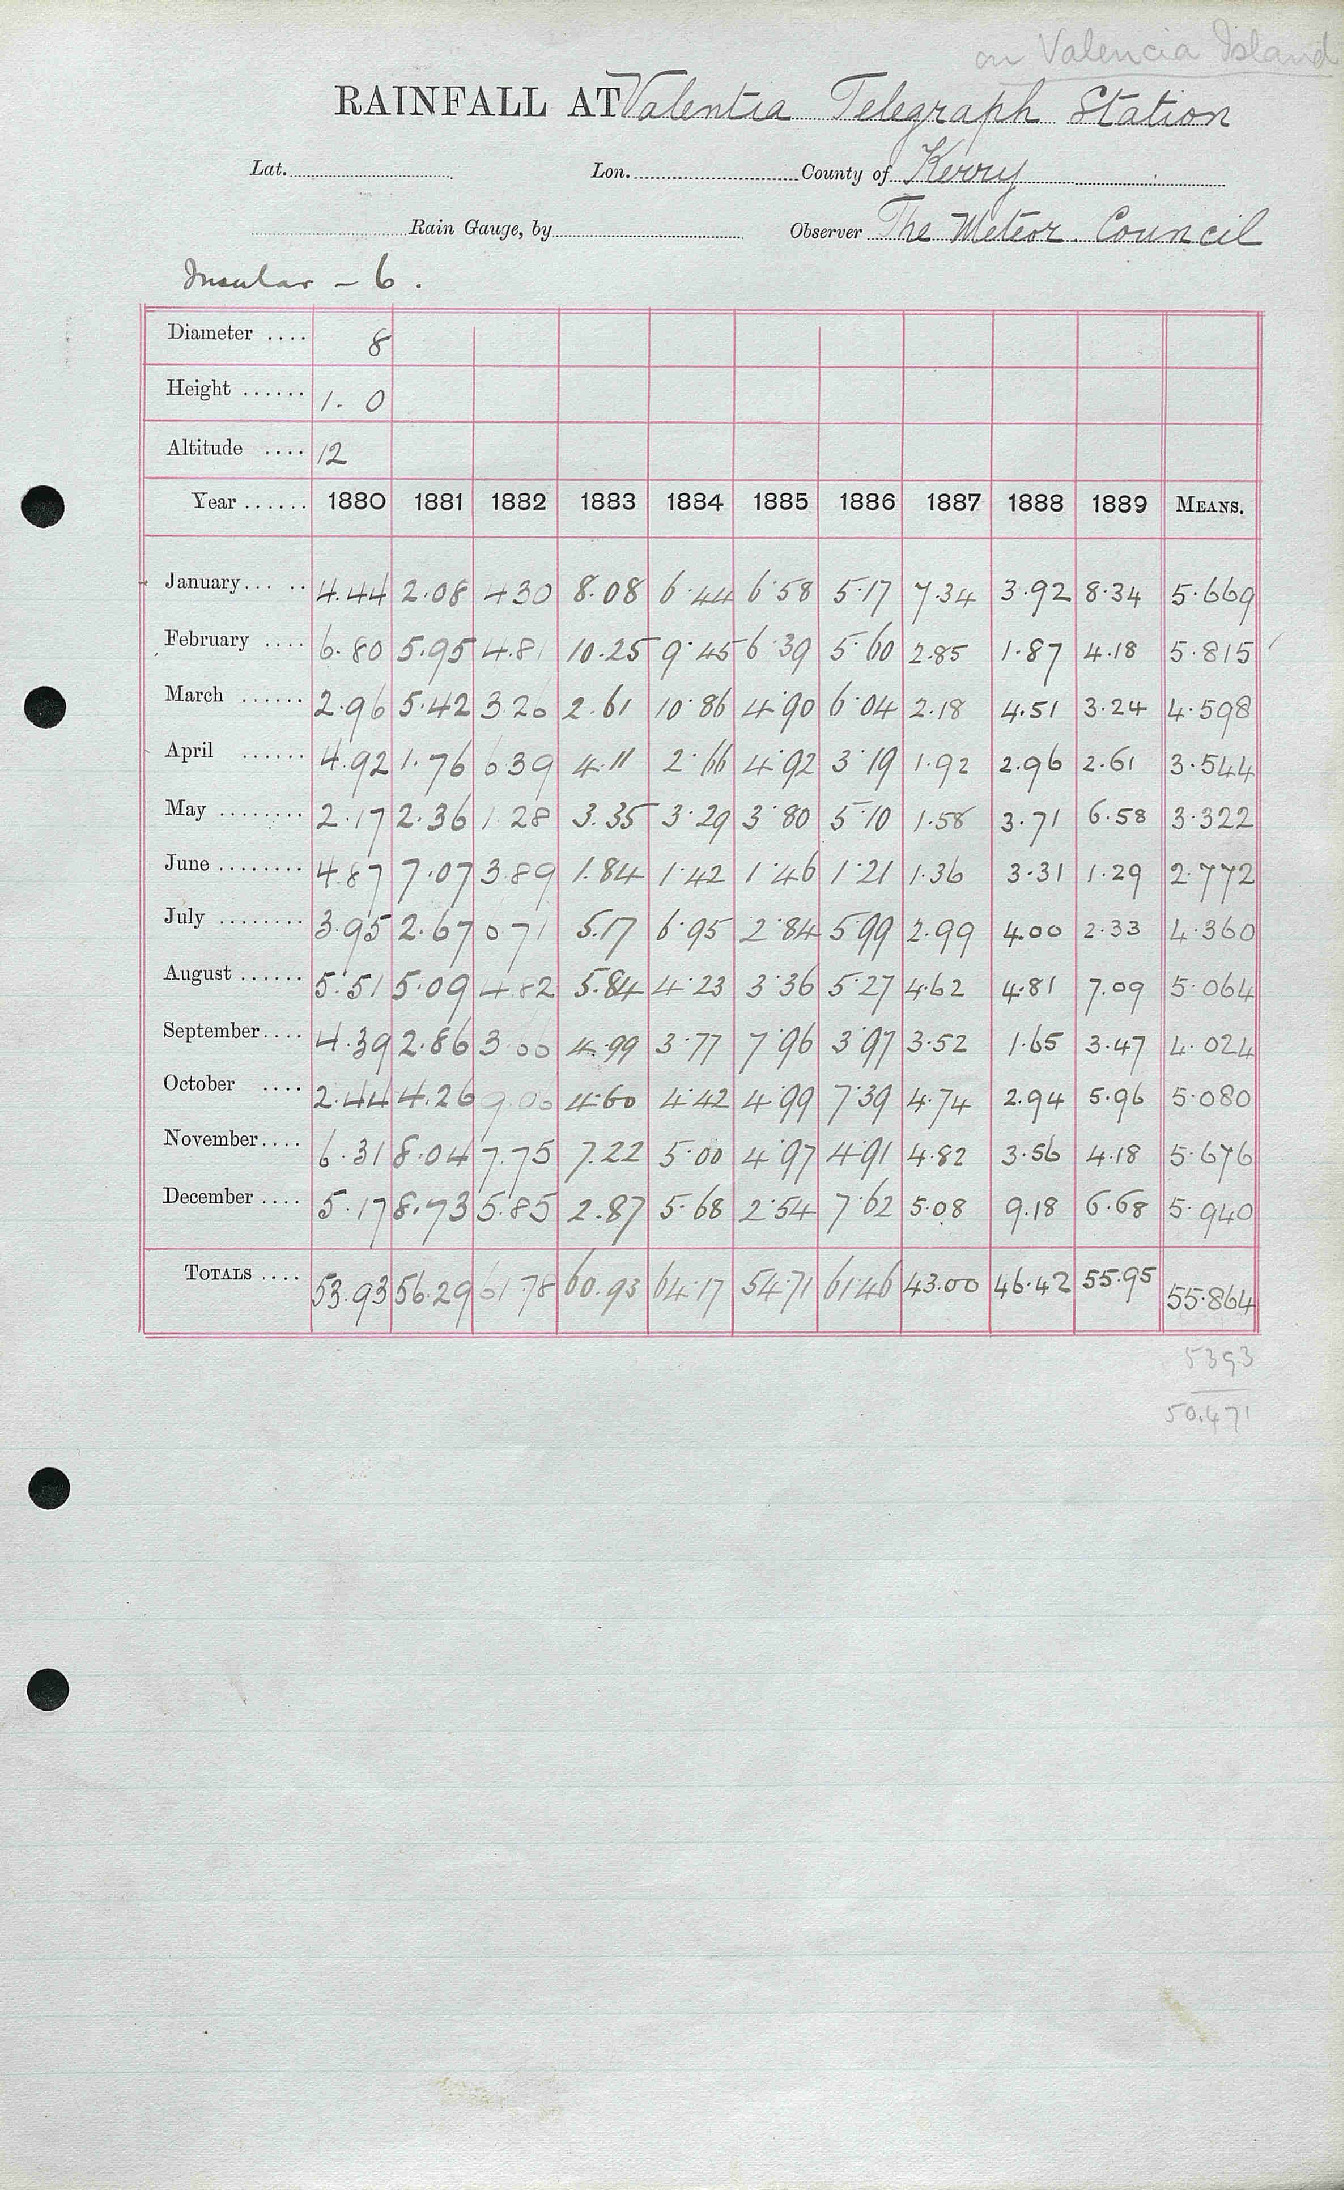 on Valencia Island
RAINFALL AT Valentia Telegraph Station
Lat. Lon. County of Kerry
Rain Gauge, by Observer The Meteor. Council
Insular - 6.
Diameter .... 8
Height ...... 1. 0
Altitude .... 12
Year ...... 1880 1881 1882 1883 1884 1885 1886 1887 1888 1889 MEANS.
January... .. 4.44 2.08 4.30 8.08 6.44 6.58 5.17 7.34 3.92 8.34 5.669
February .... 6.80 5.95 4.81 10.25 9.45 6.39 5.60 2.85 1.87 4.18 5.815
March ...... 2.96 5.42 3.26 2.61 10.86 4.90 6.04 2.18 4.51 3.24 4.598
April ...... 4.92 1.76 6.39 4.11 2.66 4.92 3.19 1.92 2.96 2.61 3.544
May ........ 2.17 2.36 1.28 3.35 3.29 3.80 5.10 1.58 3.71 6.58 3.322
June ........ 4.87 7.07 3.89 1.84 1.42 1.46 1.21 1.36 3.31 1.29 2.772
July ........ 3.95 2.67 6.71 5.17 6.95 2.84 5.99 2.99 4.00 2.33 4.360
August ...... 5.51 5.09 4.82 5.84 4.23 3.36 5.27 4.62 4.81 7.09 5.064
September.... 4.39 2.86 3.66 4.99 3.77 7.96 3.97 3.52 1.65 3.47 4.024
October .... 2.44 4.26 9.06 4.60 4.42 4.99 7.39 4.74 2.94 5.96 5.080
November.... 6.31 8.04 7.75 7.22 5.00 4.97 4.91 4.82 3.56 4.18 5.676
December .... 5.17 8.73 5.85 2.87 5.68 2.54 7.62 5.08 9.18 6.68 5.940
TOTALS .... 53.93 56.29 61.78 60.93 64.17 54.71 61.46 43.00 46.42 55.95 55.864
5393
50.471